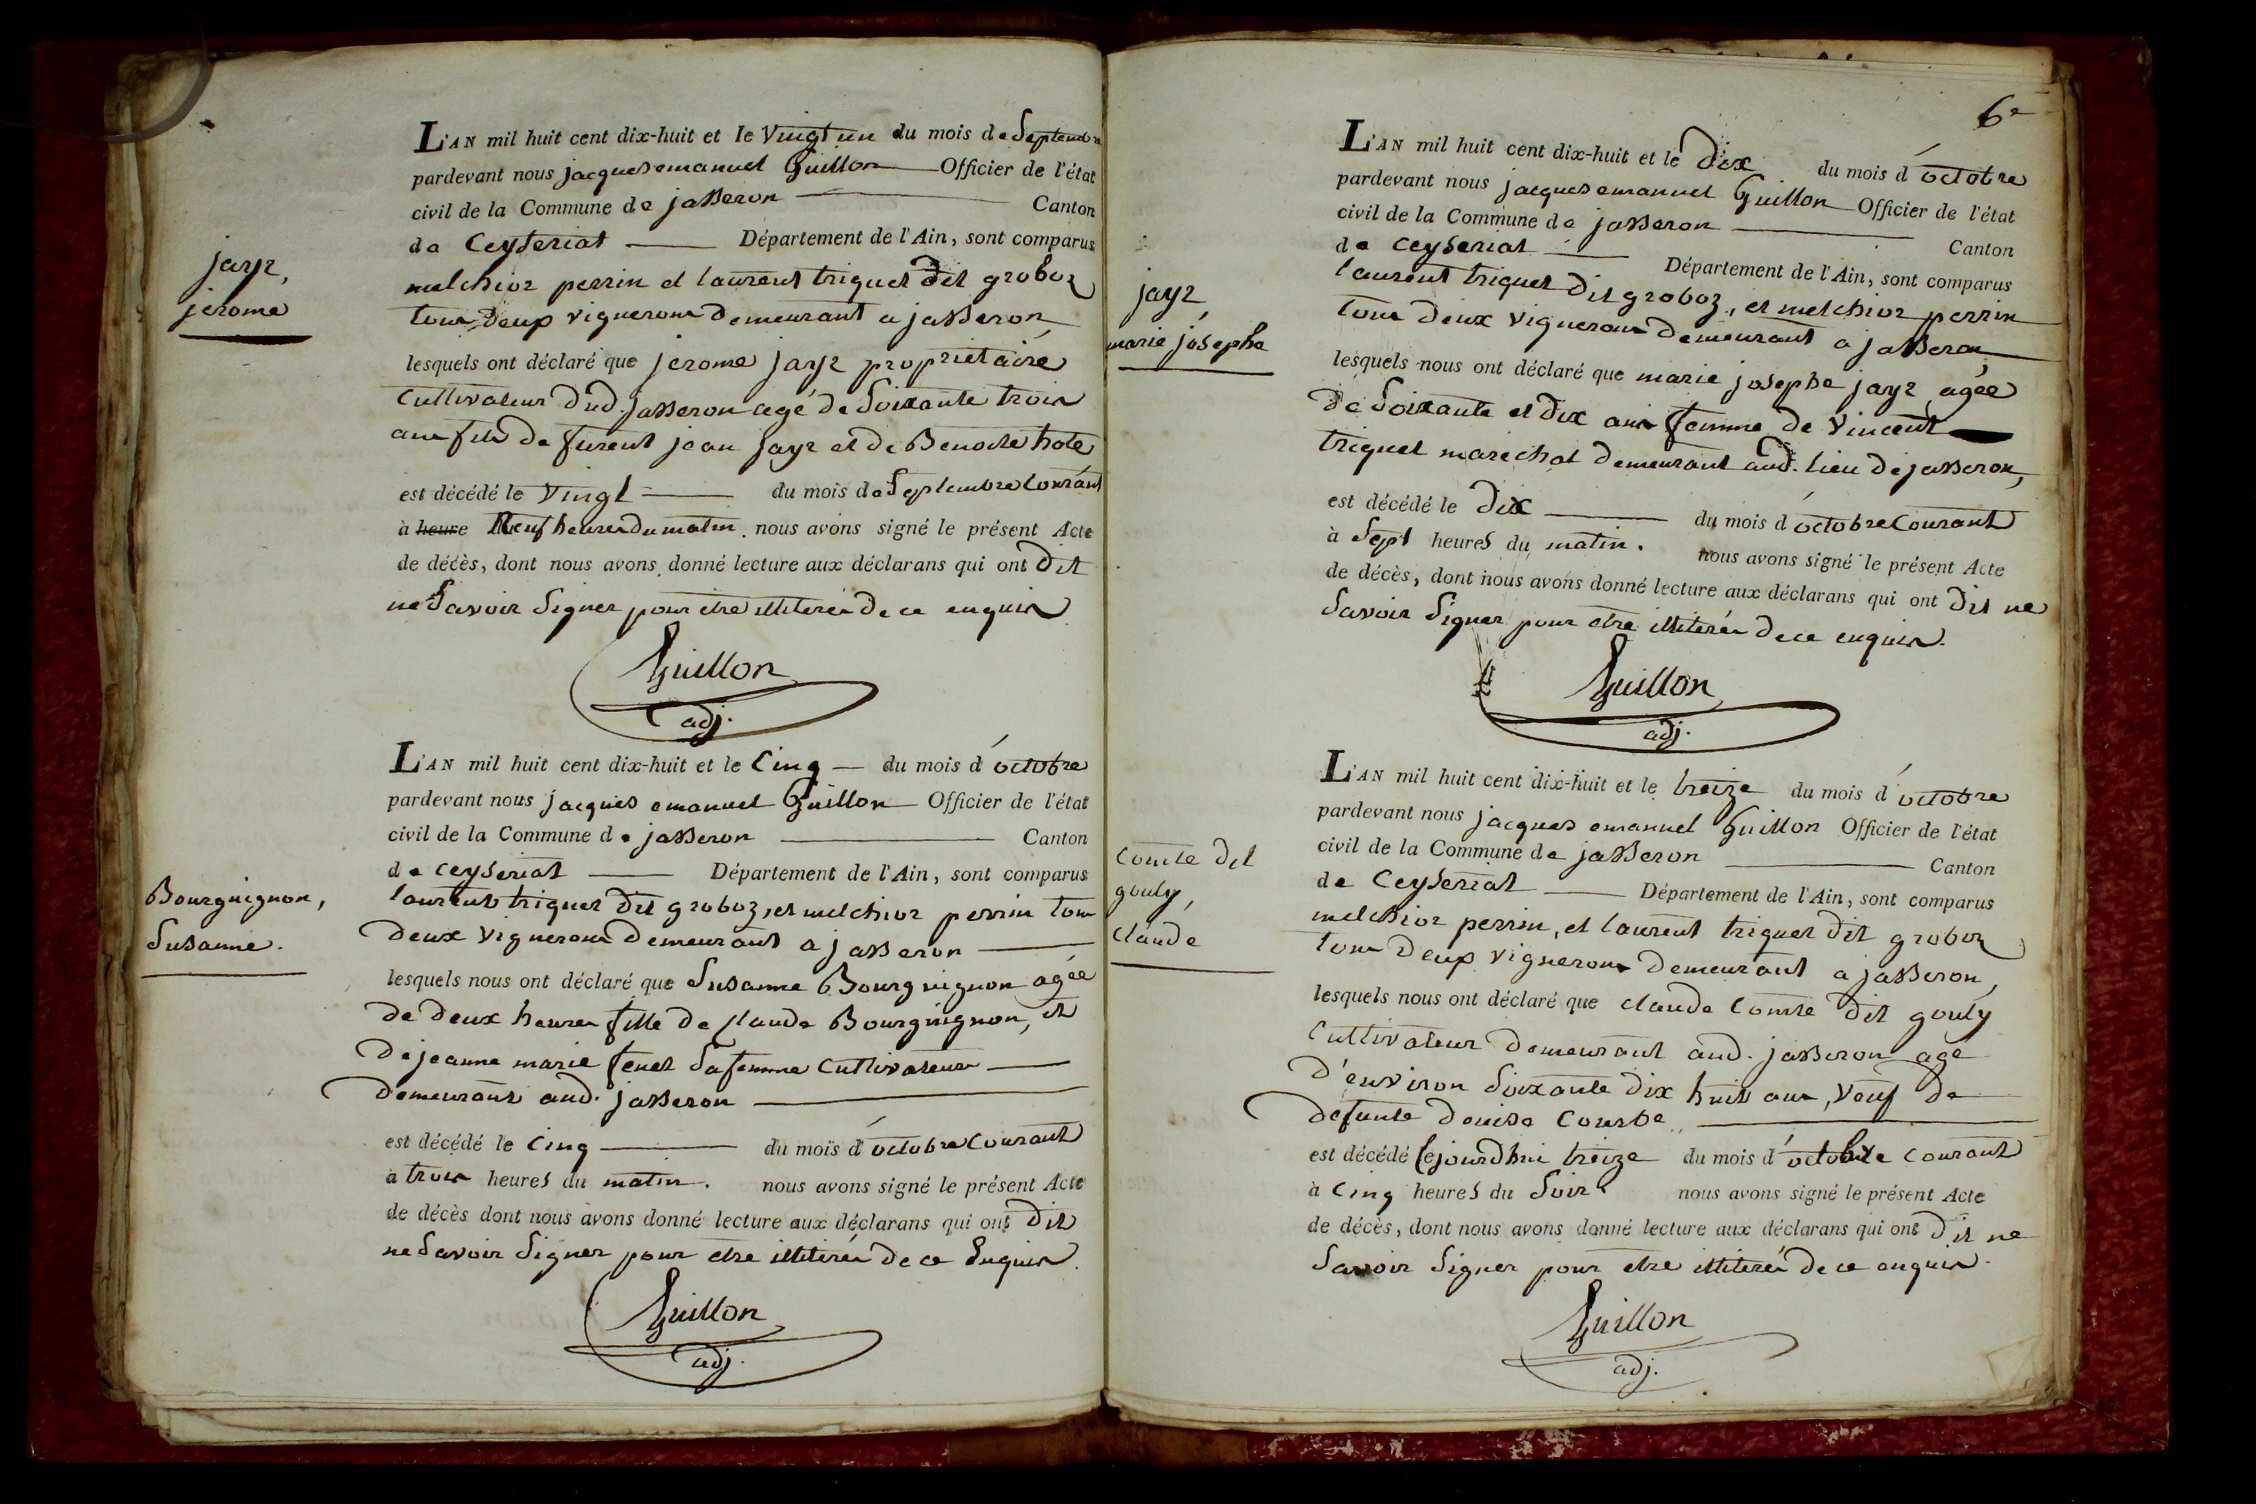 jayr,
jerome
L'AN mil huit cent dix-huit et le vingt un du mois de Septembre
pardevant nous jacques emanuel Guillon Officier de l'état
civil de la Commune de jasseron Canton
de Ceyseriat Département de l'Ain, sont comparus
melchior perrin et laurent triquet dit groboz
tous deux vignerons demeurant a jasseron
lesquels ont déclaré que jerome jayr propriétaire
Cultivateur dud. jasseron agé de Soixante trois
ans fils de furent jean jayr et de Benoite
est décédé le vingt du mois de Septembre Courant
à heure Neuf heures du matin. nous avons signé le présent Acte
de décès, dont nous avons donné lecture aux déclarans qui ont dit
ne Savoir Signer pour etre illiterés de ce enquis
Guillon
adj.
Bourguignon,
Susanne.
L'AN mil huit cent dix-huit et le Cinq du mois d'octobre
pardevant nous jacques emanuel Guillon Officier de l'état
civil de la Commune de jasseron Canton
de ceyseriat Département de l'Ain, sont comparus
laurent triquet dit groboz, et melchior perrin tous
deux vignerons demeurant a jasseron
lesquels nous ont déclaré que Susanne Bourguignon agée
de deux heures fille de Claude Bourguignon, et
de jeanne marie Sa femme Cultivateurs
demeurant aud. jasseron
est décédé le Cinq du mois d'octobre Courant
à trois heures du matin. nous avons signé le présent Acte
de décès dont nous avons donné lecture aux déclarans qui ont dit
ne Savoir Signer pour etre illiterés de ce Enquis.
Guillon
adj.
6e
jayr,
marie josephe
L'AN mil huit cent dix-huit et le Dix du mois d'octobre
pardevant nous jacques emanuel Guillon Officier de l'état
civil de la Commune de jasseron Canton
de ceyseriat Département de l'Ain, sont comparus
laurent triquet dit groboz, et melchior perrin
tous deux vignerons demeurant a jasseron
lesquels nous ont déclaré que marie josephe jayr agée
de Soixante et dix ans femme de Vincent
triquet marechal demeurant aud. lieu de jasseron,
est décédé le dix du mois d'octobre Courant
à Sept heures du matin. nous avons signé le présent Acte
de décès, dont nous avons donné lecture aux déclarans qui ont dit ne
Savoir Signer pour etre illiterés de ce enquis.
Guillon
adj.
Comte dit
gouly,
claude
L'AN mil huit cent dix-huit et le treize du mois d'octobre
pardevant nous jacques emanuel Guillon Officier de l'état
civil de la Commune de jasseron Canton
de Ceyseriat Département de l'Ain, sont comparus
melchior perrin, et laurent triquet dit groboz
tous deux vignerons demeurant a jasseron,
lesquels nous ont déclaré que claude Comte dit gouly
Cultivateur demeurant aud. jasseron agé
d'environ Soixante dix huit ans, veuf de
defunte denise Courbe
est décédé cejourd'hui treize du mois d'octobre courant
à Cinq heures du Soir. nous avons signé le présent Acte
de décès, dont nous avons donné lecture aux déclarans qui ont dit ne
Savoir Signer pour etre illiterés de ce enquis.
Guillon
adj.